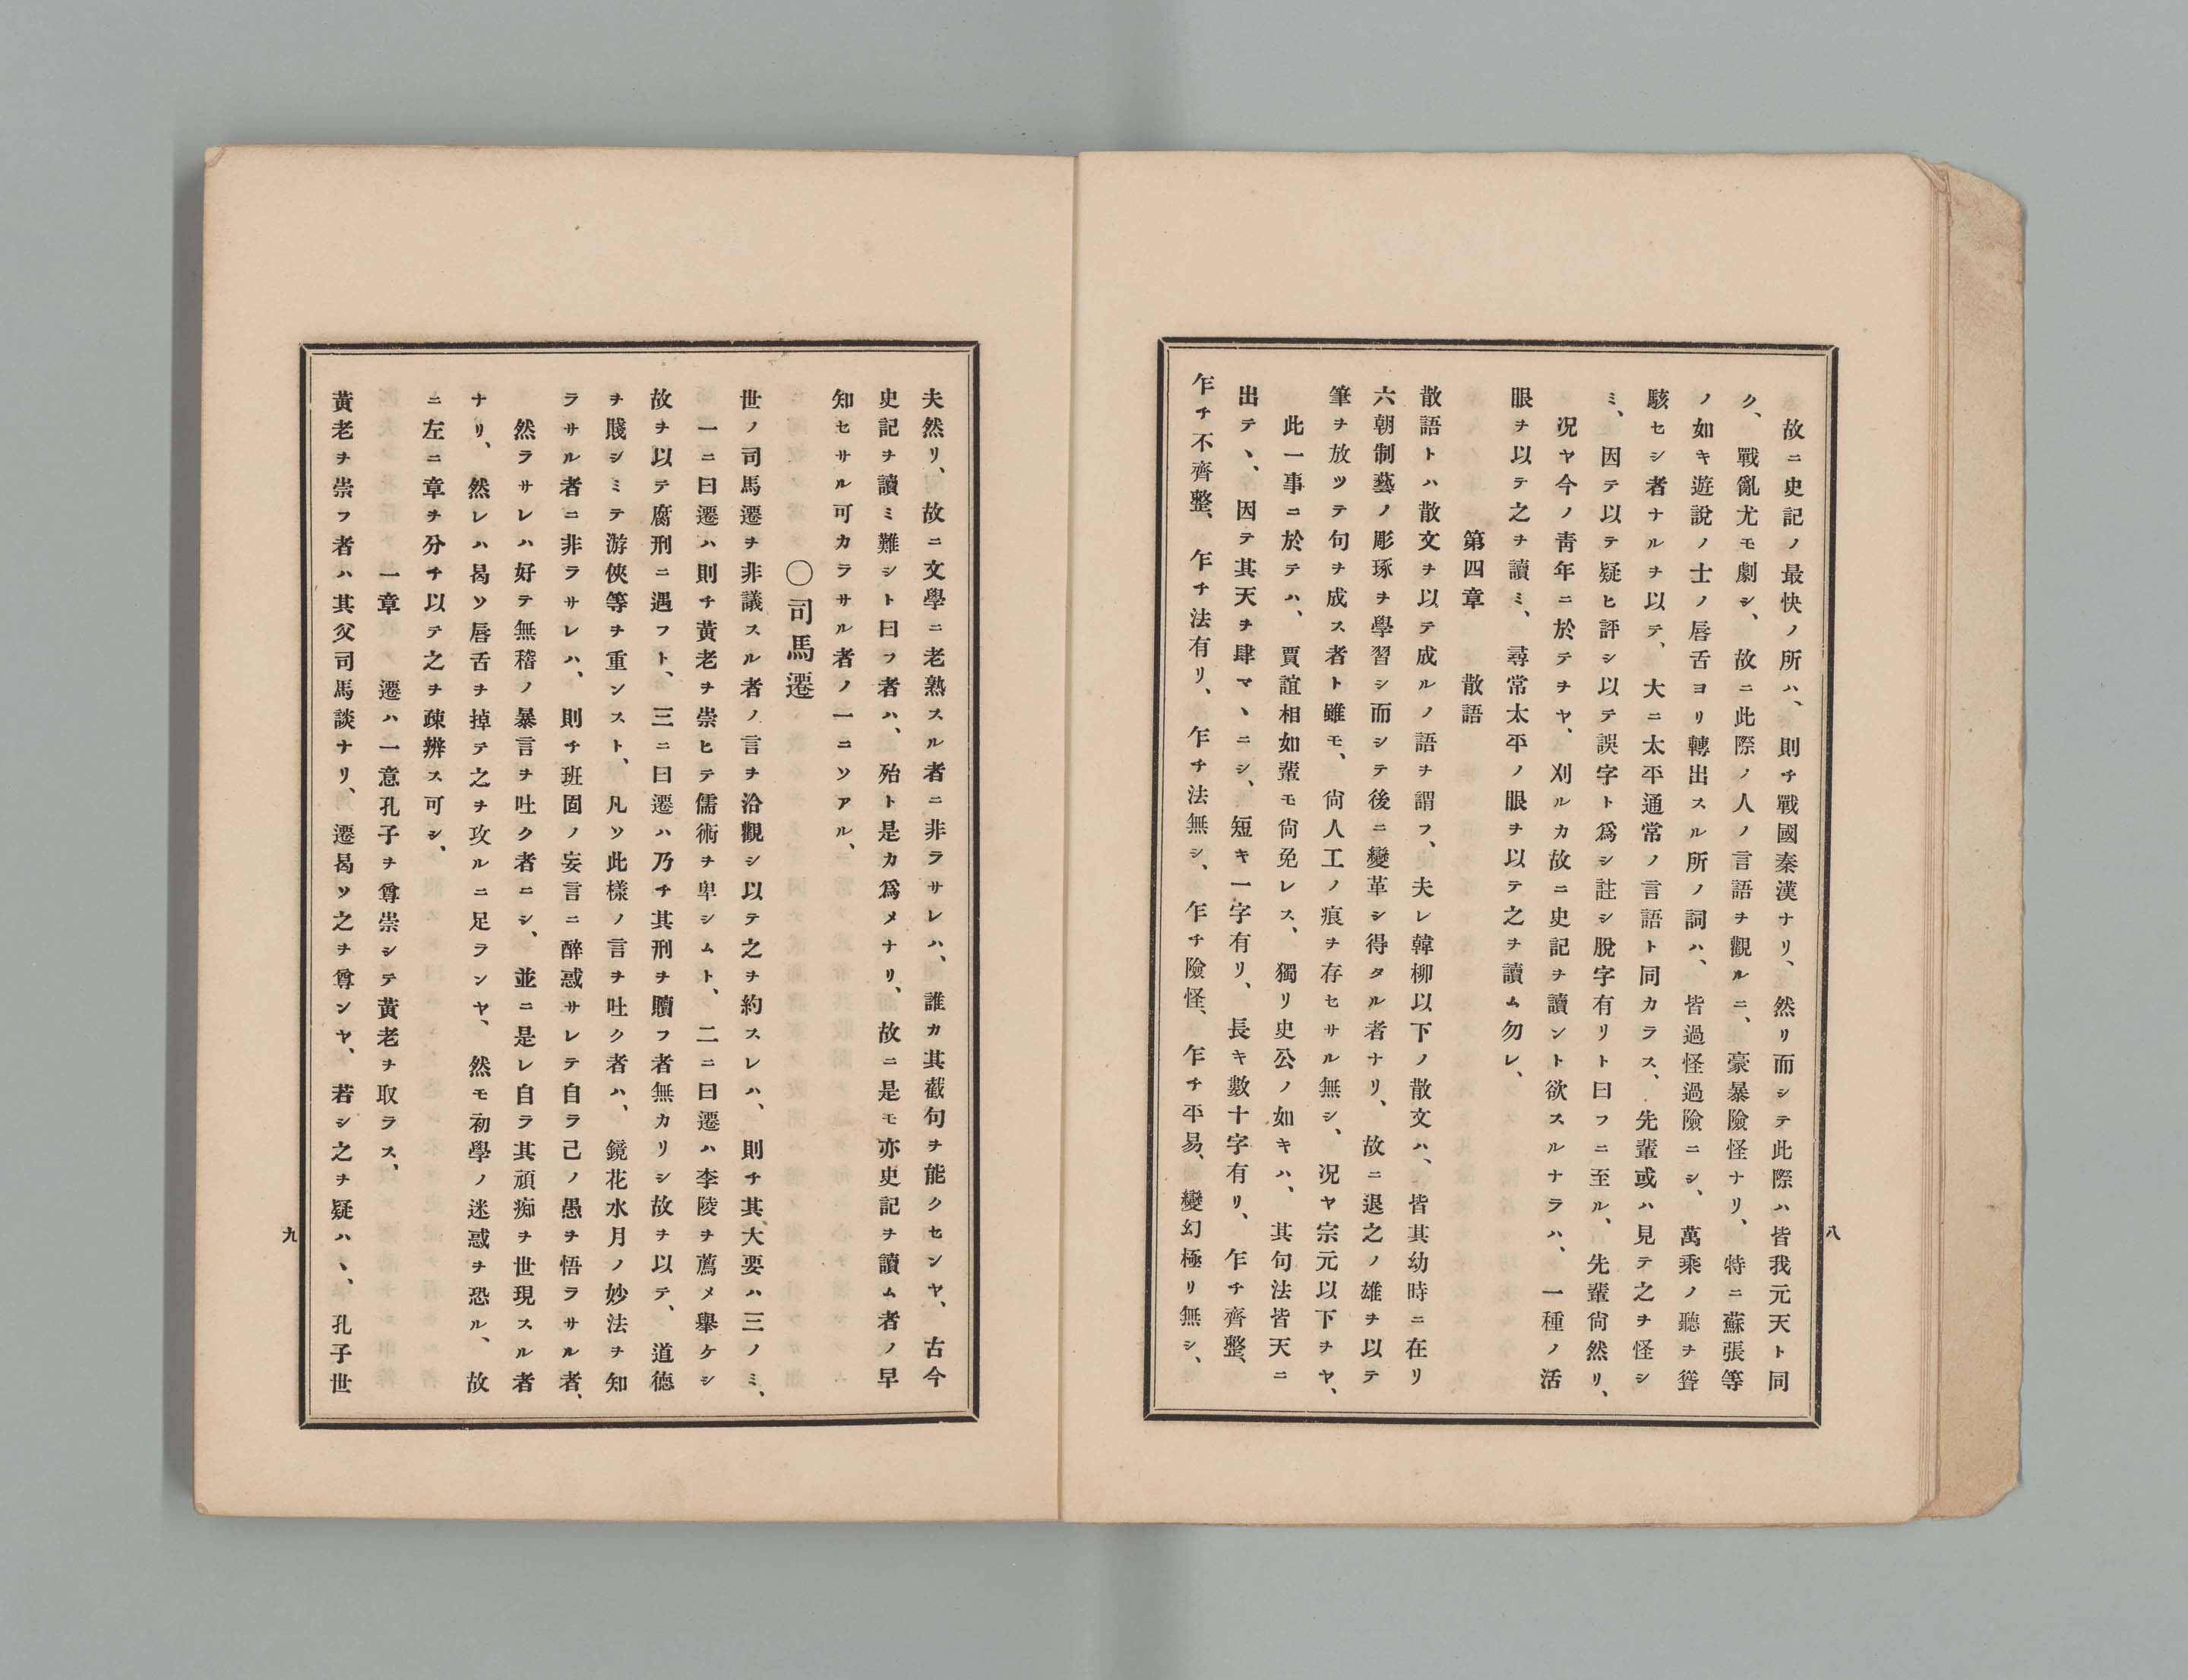 故ニ史記ノ最快ノ所ハ、則チ戰國秦漢ナリ、然リ而シテ此際ハ皆我元天ト同
ク、戰亂尤モ劇シ、故ニ此際ノ人ノ言語ヲ觀ルニ、豪暴險怪ナリ、特ニ蘇張等
ノ如キ遊說ノ士ノ唇舌ヨリ轉出スル所ノ詞ハ、皆過怪過險ニシ、萬乘ノ聽ヲ聳
駭セシ者ナルヲ以テ、大ニ太平通常ノ言語ト同カラス、先輩或ハ見テ之ヲ怪シ
ミ、因テ以テ疑ヒ評シ以テ誤字ト爲シ註シ脫字有リト曰フニ至ル、先輩尙然リ、
况ヤ今ノ靑年ニ於テヲヤ、刈ルカ故ニ史記ヲ讀ント欲スルナラハ、一種ノ活
眼ヲ以テ之ヲ讀ミ、尋常太平ノ眼ヲ以テ之ヲ讀ム勿レ、
第四章　散語
散語トハ散文ヲ以テ成ルノ語ヲ謂フ、夫レ韓柳以下ノ散文ハ、皆其幼時ニ在リ
六朝制藝ノ彫琢ヲ學習シ而シテ後ニ變革シ得タル者ナリ、故ニ退之ノ雄ヲ以テ
筆ヲ放ツテ句ヲ成ス者ト雖モ、尙人工ノ痕ヲ存セサル無シ、况ヤ宗元以下ヲヤ、
此一事ニ於テハ、賈誼相如輩モ尙免レス、獨リ史公ノ如キハ、其句法皆天ニ
出テヽ、因テ其天ヲ肆マヽニシ、短キ一字有リ、長キ數十字有リ、乍チ齊整、
乍チ不齊整、乍チ法有リ、乍チ法無シ、乍チ險怪、乍チ平易、變幻極リ無シ、
八
夫然リ、故ニ文學ニ老熟スル者ニ非ラサレハ、誰カ其截句ヲ能クセンヤ、古今
史記ヲ讀ミ難シト曰フ者ハ、殆ト是カ爲メナリ、故ニ是モ亦史記ヲ讀ム者ノ早
知セサル可カラサル者ノ一ニソアル、
〇司馬遷
世ノ司馬遷ヲ非議スル者ノ言ヲ洽觀シ以テ之ヲ約スレハ、則チ其大要ハ三ノミ、
一ニ曰遷ハ則チ黃老ヲ崇ヒテ儒術ヲ卑シムト、二ニ曰遷ハ李陵ヲ薦メ擧ケシ
故ヲ以テ腐刑ニ遇フト、三ニ曰遷ハ乃チ其刑ヲ贖フ者無カリシ故ヲ以テ、道德
ヲ賤シミテ游俠等ヲ重ンスト、凡ソ此樣ノ言ヲ吐ク者ハ、鏡花水月ノ妙法ヲ知
ラサル者ニ非ラサレハ、則チ班固ノ妄言ニ醉惑サレテ自ラ己ノ愚ヲ悟ラサル者、
然ラサレハ好テ無稽ノ暴言ヲ吐ク者ニシ、並ニ是レ自ラ其頑痴ヲ世現スル者
ナリ、然レハ曷ソ唇舌ヲ掉テ之ヲ攻ルニ足ランヤ、然モ初學ノ迷惑ヲ恐ル、故
ニ左ニ章ヲ分チ以テ之ヲ疎辨ス可シ、
一章　遷ハ一意孔子ヲ尊崇シテ黃老ヲ取ラス、
黃老ヲ崇フ者ハ其父司馬談ナリ、遷曷ソ之ヲ尊ンヤ、若シ之ヲ疑ハヽ、孔子世
九